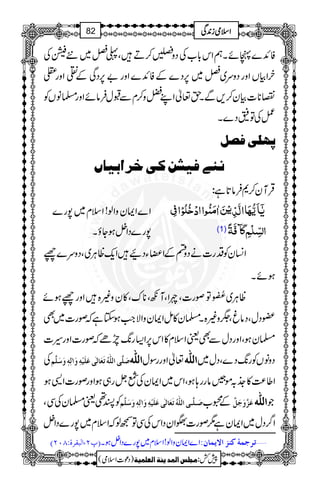 اسلامی زندگی
82
فائدے پہنچائے۔ ہم اس باب کی دو فصلیں کرتے ہیں، پہلی فصل میں نئے فیشن کی
خرابیاں اور دوسری فصل میں پردے کے فائدے اور بے پردگی کے نقلی اور عقلی
نقصانات بیان کریں گے۔ حق تعالیٰ اپنے فضل و کرم سے قبول فرمائے اور مسلمانوں کو
عمل کی توفیق دے۔
پہلی فصل
نئے فیشن کی خرابیاں
قرآن کریم فرماتا ہے:
یٰۤاَیُّهَا الَّذِیْنَ اٰمَنُوا ادْخُلُوْا فِی
اے ایمان والو! اسلام میں پورے
السِّلْمِ كَآفَّةً (1)
پورے داخل ہو جاؤ۔
انسان کو قدرت نے دو قسم کے اعضاء دیئے ہیں ایک ظاہری، دوسرے چھپے
ہوئے۔
ظاہری عضو تو صورت، چہرا، آنکھ، ناک، کان وغیرہ ہیں اور چھپے ہوئے
عضو دل، دماغ، جگر وغیرہ۔ مسلمان کامل ایمان والا جب ہو سکتا ہے کہ صورت میں بھی
مسلمان ہو، اور دل سے بھی یعنی اسلام کا اس پر ایسا رنگ چڑھے کہ صورت اور سیرت
دونوں کو رنگ دے، دل میں اللہ تعالیٰ اور رسول اللہ صَلَّی اللهُ تَعَالٰی عَلَیْهِ وَاٰلِهٖ وَسَلَّم کی
اطاعت کا جذبہ موجیں مار رہا ہو، اس میں ایمان کی شمع جل رہی ہو اور صورت ایسی ہو
جو اللہ عَزَّوَجَلَّ کے محبوب صَلَّی اللهُ تَعَالٰی عَلَیْهِ وَاٰلِهٖ وَسَلَّم کو پسند تھی یعنی مسلمان کی سی،
اگر دل میں ایمان ہے مگر صورت بھگوان داس کی سی تو سمجھ لو کہ اسلام میں پورے داخل
ترجمۂ کنز الایمان: اے ایمان والو! اسلام میں پورے داخل ہو۔ (پ ۲، البقرۃ: ۲۰۸)
پیش کش: مجلس المدینۃ العلمیۃ (دعوتِ اسلامی)